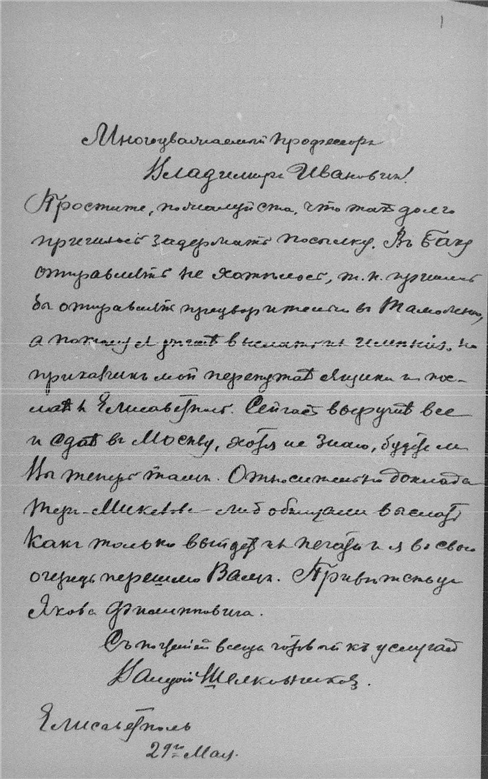 1
Многоуважаемый профессоръ
Владимиръ Ивановичъ!
Простите, пожалуйста, что такъ долго
пришлось задержать посылку. Въ Баку
отправлять не хотѣлось, т. к. пришлось
бы отправлять предварительно въ
а потому я думалъ выслать изъ имѣнія, но
приказчикъ мой перепуталъ ящики и пос-
лалъ въ Елисаветполь. Сейчасъ выручилъ все
и сдалъ въ Москву, хотя не знаю, будете ли
Вы теперь тамъ. Относительно доклада
Теръ-Микелова мнѣ обѣщали выслать
какъ только выйдетъ изъ печати и я въ свою
очередь перешлю Вамъ. Привѣтствуя
Якова Филипповича.
Съ почтеніемъ всегда готовый къ услугамъ
Шелковниковъ.
Елисаветполь
29го Мая.